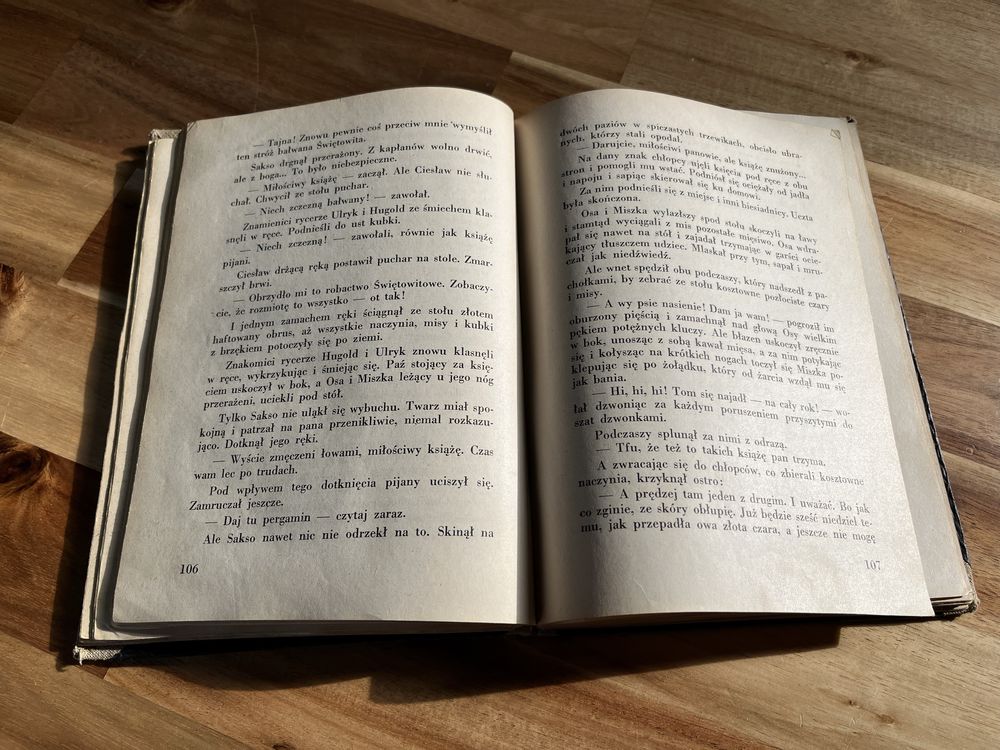 — Tajna! Znowu pewnie coś przeciw mnie wymyślił
ten stróż bałwana Świętowita.
Sakso drgnął przerażony. Z kapłanów wolno drwić,
ale z boga... To było niebezpieczne.
— Miłościwy książę — zaczął. Ale Ciesław nie słu-
chał. Chwycił ze stołu puchar.
— Niech zczezną bałwany! — zawołał.
Znamienici rycerze Ulryk i Hugold ze śmiechem kla-
snęli w ręce. Podnieśli do ust kubki.
— Niech zczezną! — zawołali, równie jak książę
pijani.
Ciesław drżącą ręką postawił puchar na stole. Zmar-
szczył brwi.
— Obrzydło mi to robactwo Świętowitowe. Zobaczy-
cie, że rozmiotę to wszystko — ot tak!
I jednym zamachem ręki ściągnął ze stołu złotem
haftowany obrus, aż wszystkie naczynia, misy i kubki
z brzękiem potoczyły się po ziemi.
Znakomici rycerze Hugold i Ulryk znowu klasnęli
w ręce, wykrzykując i śmiejąc się. Paź stojący za księ-
ciem uskoczył w bok, a Osa i Miszka leżący u jego nóg
przerażeni, uciekli pod stół.
Tylko Sakso nie uląkł się wybuchu. Twarz miał spo-
kojną i patrzał na pana przenikliwie, niemal rozkazu-
jąco. Dotknął jego ręki.
— Wyście zmęczeni łowami, miłościwy książę. Czas
wam lec po trudach.
Pod wpływem tego dotknięcia pijany uciszył się.
Zamruczał jeszcze.
— Daj tu pergamin — czytaj zaraz.
Ale Sakso nawet nic nie odrzekł na to. Skinął na
106
dwóch paziów w spiczastych trzewikach, obcisło ubra-
nych, którzy stali opodal.
— Darujcie, miłościwi panowie, ale książę znużony...
Na dany znak chłopcy ujęli księcia pod ręce z obu
stron i pomogli mu wstać. Podniósł się ociężały od jadła
i napoju i sapiąc skierował się ku domowi.
Za nim podnieśli się z miejsc i inni biesiadnicy. Uczta
była skończona.
Osa i Miszka wylazłszy spod stołu skoczyli na ławy
i stamtąd wyciągali z mis pozostałe mięsiwo. Osa wdra-
pał się nawet na stół i zajadał trzymając w garści ocie-
kający tłuszczem udziec. Mlaskał przy tym, sapał i mru-
czał jak niedźwiedź.
Ale wnet spędził obu podczaszy, który nadszedł z pa-
chołkami, by zebrać ze stołu kosztowne pozłociste czary
i misy.
— A wy psie nasienie! Dam ja wam! — pogroził im
oburzony pięścią i zamachnął nad głową Osy wielkim
pękiem potężnych kluczy. Ale błazen uskoczył zręcznie
w bok, unosząc z sobą kawał mięsa, a za nim potykając
się i kołysząc na krótkich nogach toczył się Miszka po-
klepując się po żołądku, który od żarcia wzdął mu się
jak bania.
— Hi, hi, hi! Tom się najadł — na cały rok! — wo-
łał dzwoniąc za każdym poruszeniem przyszytymi do
szat dzwonkami.
Podczaszy splunął za nimi z odrazą.
— Tfu, że też to takich książę pan trzyma.
A zwracając się do chłopców, co zbierali kosztowne
naczynia, krzyknął ostro:
— A prędzej tam jeden z drugim. I uważać. Bo jak
co zginie, ze skóry obłupię. Już będzie sześć niedziel te-
mu, jak przepadła owa złota czara, a jeszcze nie mogę
107